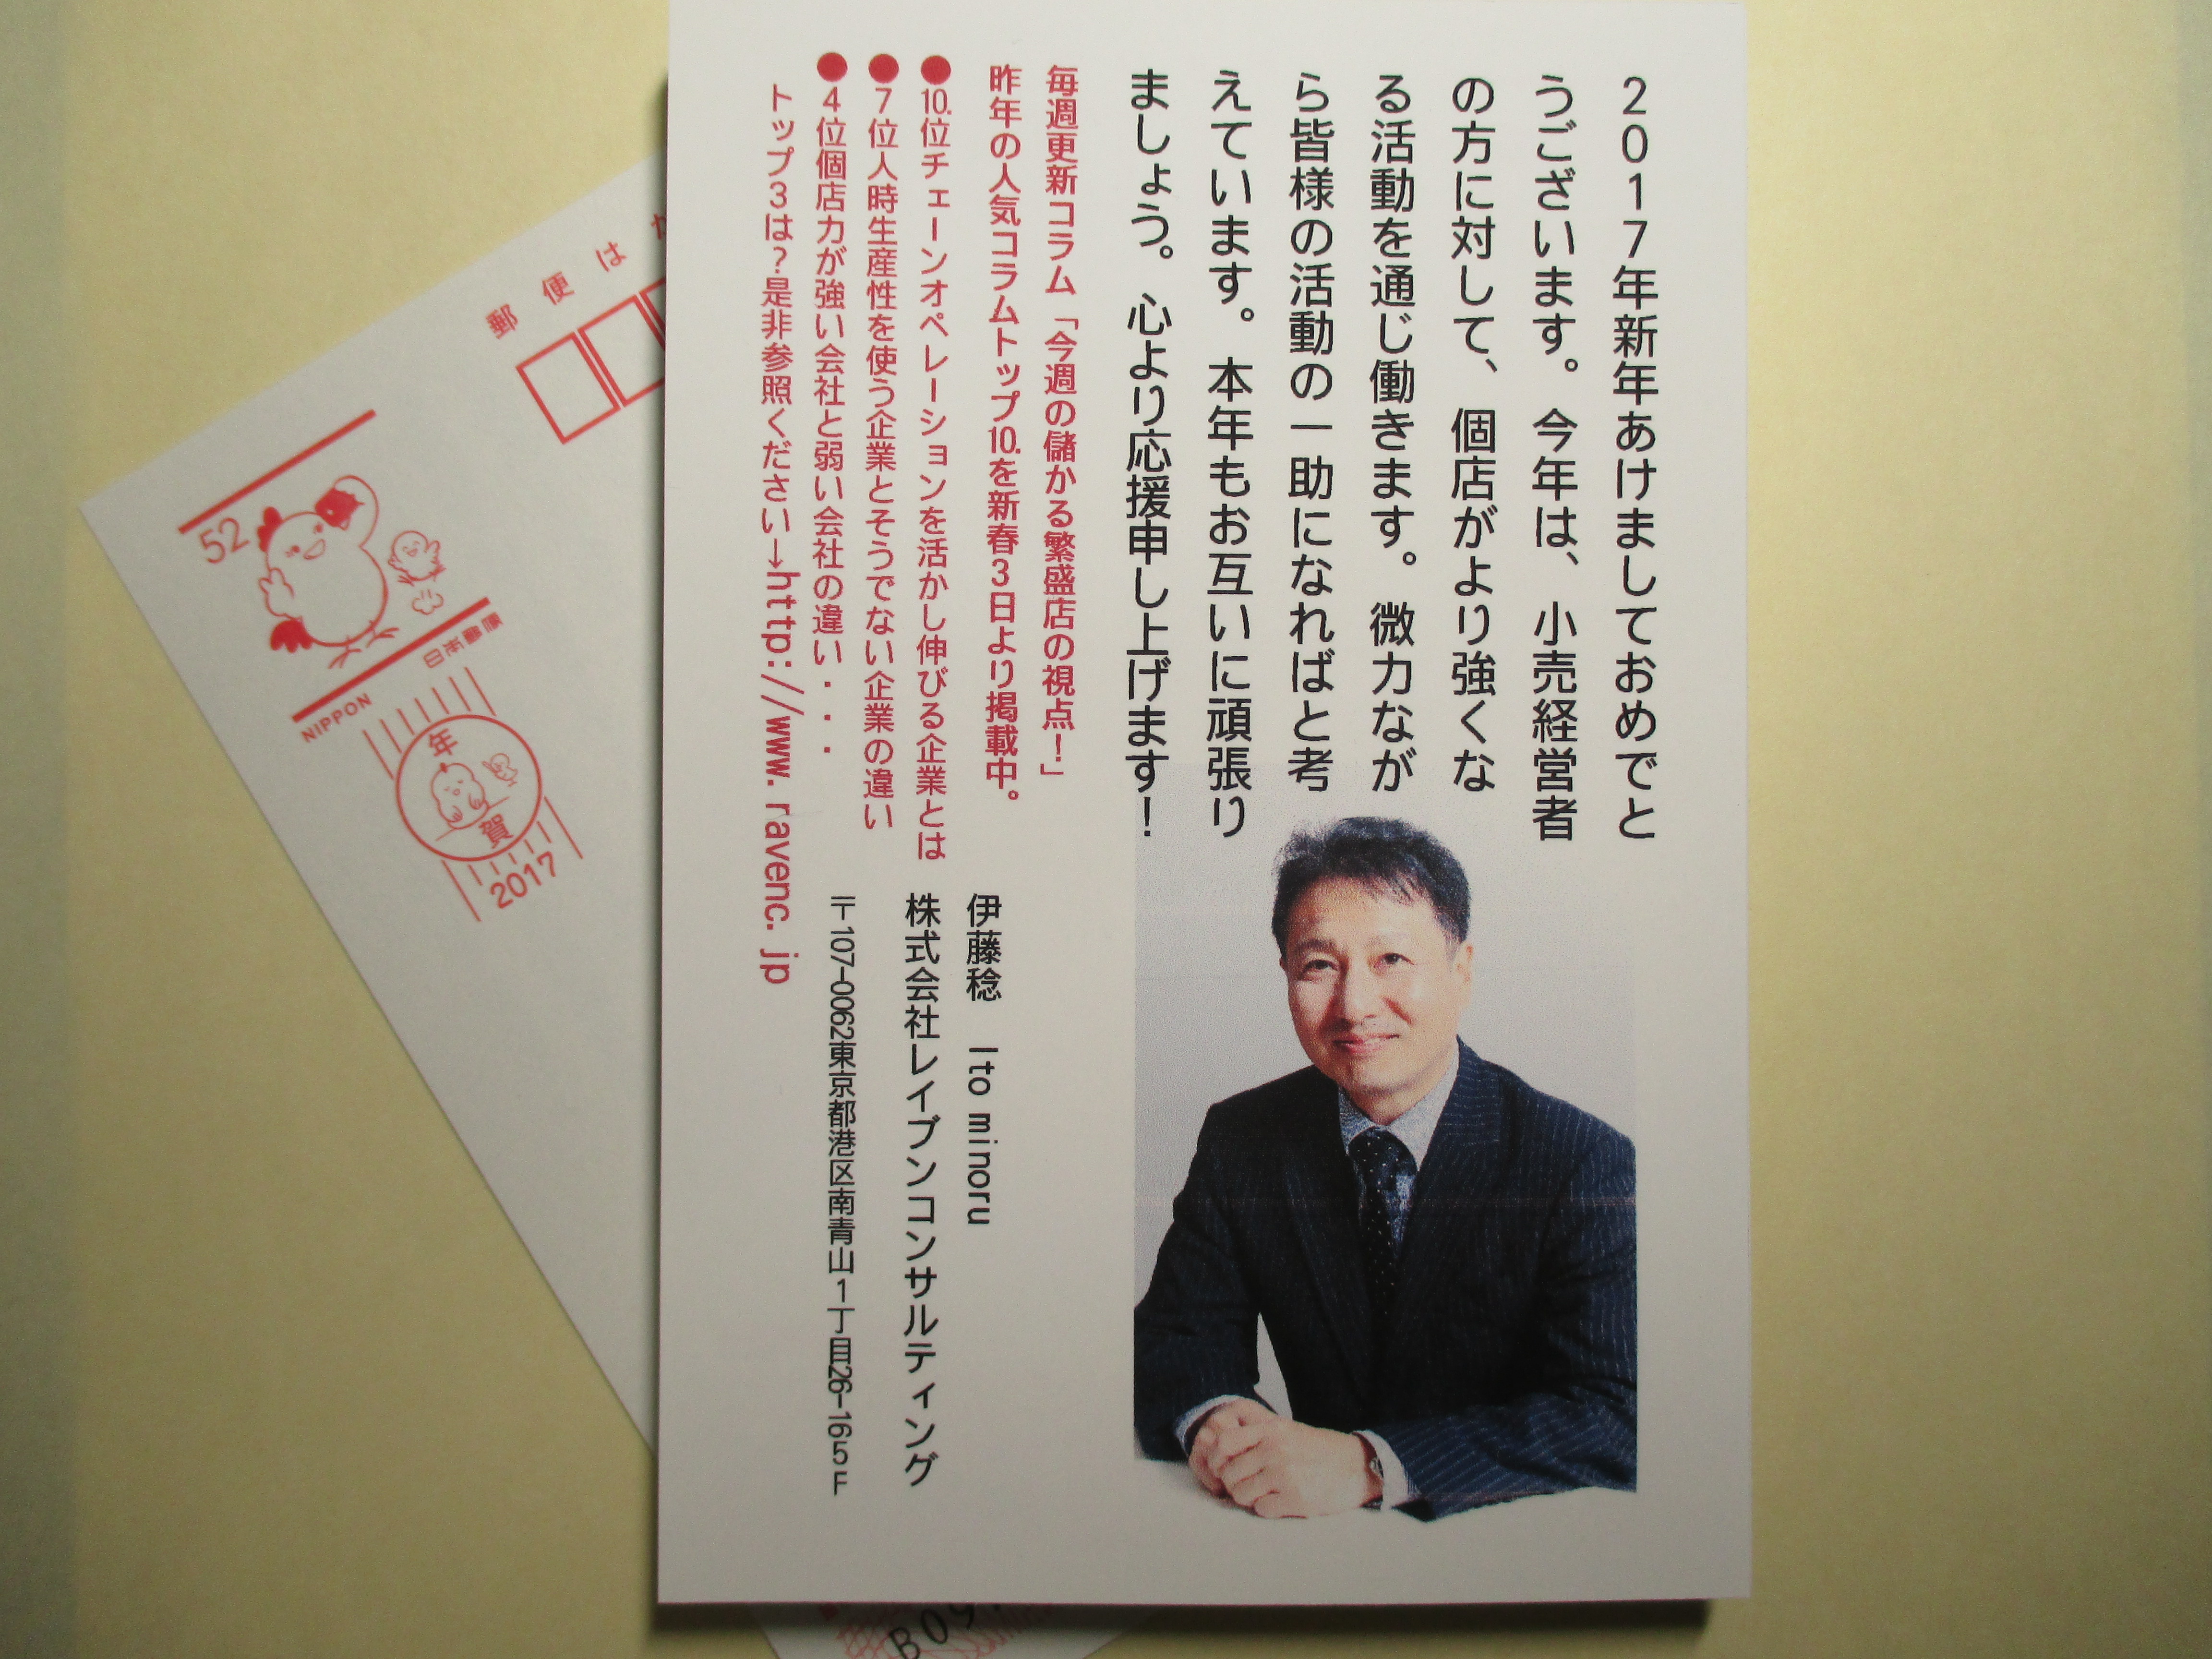 2017年新年あけましておめでと
うございます。今年は、小売経営者
の方に対して、個店がより強くな
る活動を通じ働きます。微力なが
ら皆様の活動の一助になればと考
えています。本年もお互いに頑張り
ましょう。心より応援申し上げます！
毎週更新コラム「今週の儲かる繁盛店の視点！」
昨年の人気コラムトップ10.を新春3日より掲載中。
●10.位チェーンオペレーションを活かし伸びる企業とは
●7位人時生産性を使う企業とそうでない企業の違い
●4位個店力が強い会社と弱い会社の違い・・・
トップ3は？是非参照ください→http://www.ravenc.jp
伊藤稔 Ito minoru
株式会社レイブンコンサルティング
〒107-0062東京都港区南青山1丁目26-165F
郵便は
52
日本郵便
NIPPON
年賀
2017
B09